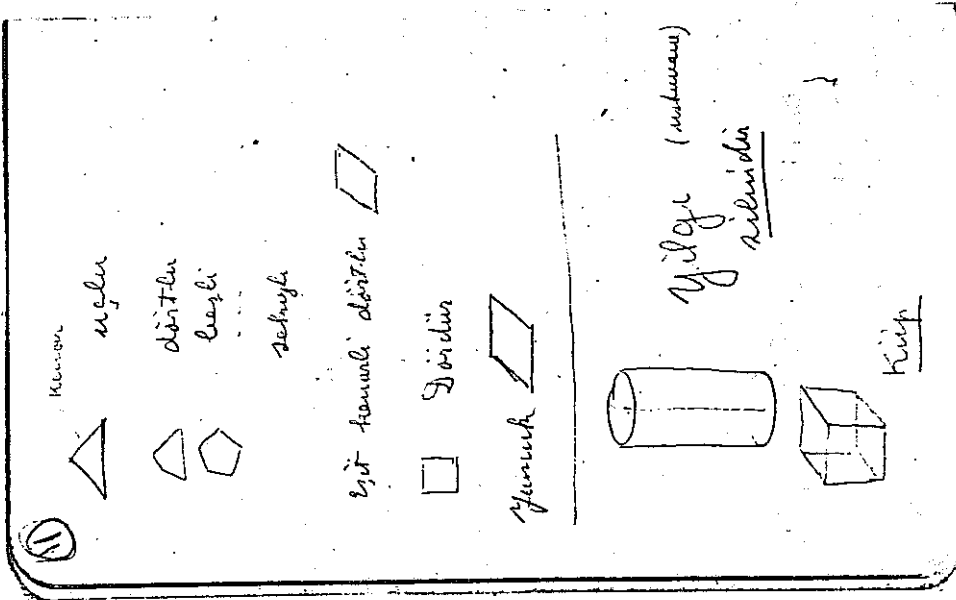 11
Kenar
üçlü
dörtlü
beşli
....
sekizli
Eşit kenarlı dörtlü
Dördün
Yamuk
Yılgı (ustuvane)
silindir
Küp